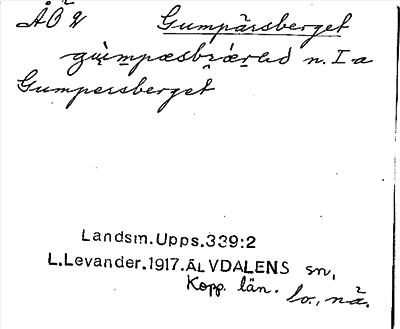 ÅÖ2 Gumpärsberget
n. I a
Gumpersberget
Landsm.Upps.339:2
L.Levander.1917.ÄLVDALENS sn,
Kopp. län. lo., nä.